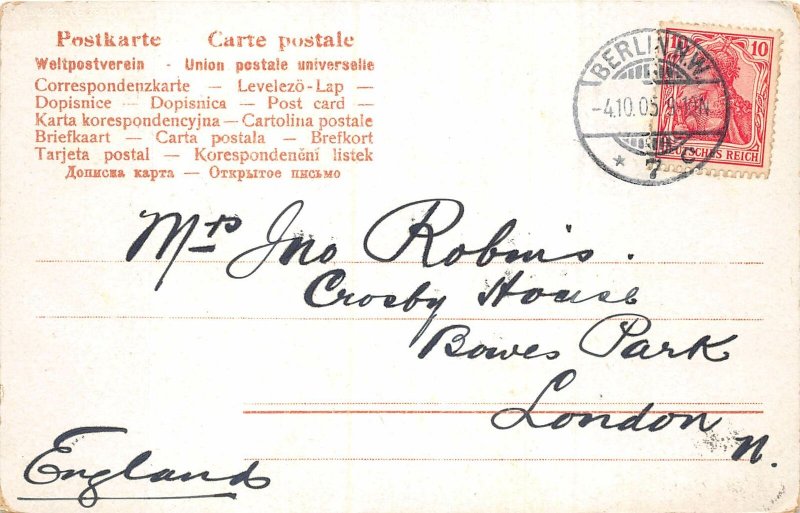 Postkarte Carte postale
Weltpostverein - Union postale universelle
Correspondenzkarte — Levelezö-Lap —
Dopisnice — Dopisnica — Post card —
Karta korespondencyjna — Cartolina postale
Briefkaart — Carta postala — Brefkort
Tarjeta postal — Korespondenční listek
Дописна карта — Открытое письмо
BERLIN N.W.
-4.10.05
* 7 c
10 10
DEUTSCHES REICH
Mrs Jno Robins.
Crosby House
Bowes Park
London
N.
England